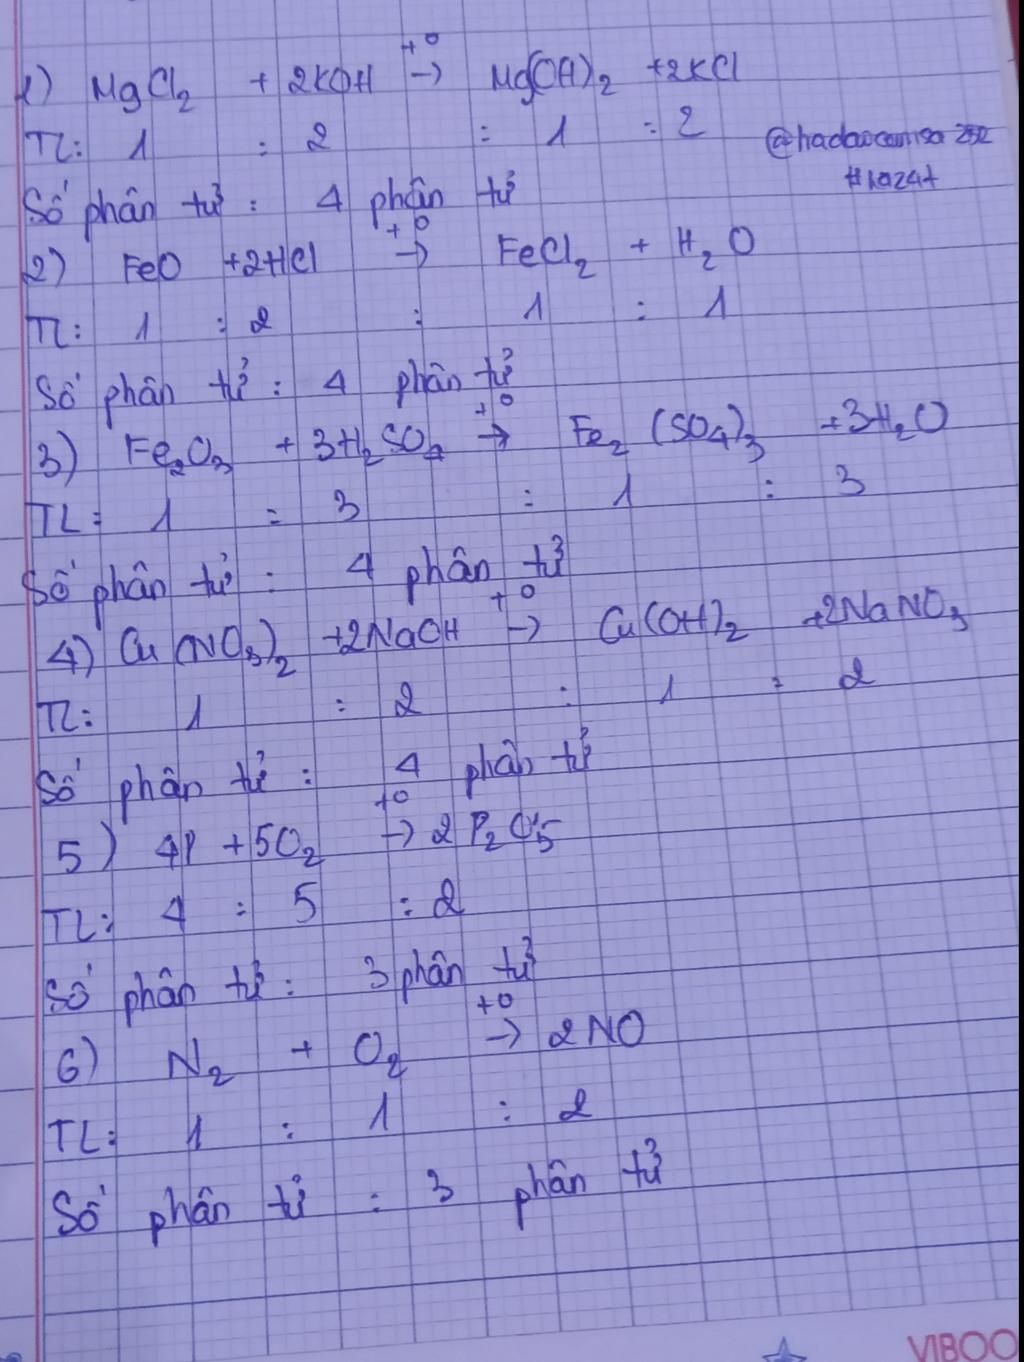 1) MgCl₂ + 2KOH →(+0) Mg(OH)₂ +2KCl
TL: 1 : 2 : 1 : 2
@hadaocamsa 252
#1a24+
Số phân tử : 4 phân tử
2) FeO +2HCl →(+0) FeCl₂ + H₂O
TL: 1 : 2 : 1 : 1
Số phân tử : 4 phân tử
3) Fe₂O₃ + 3H₂SO₄ →(+0) Fe₂(SO₄)₃ +3H₂O
TL: 1 : 3 : 1 : 3
Số phân tử : 4 phân tử
4) Cu(NO₃)₂ +2NaOH →(+0) Cu(OH)₂ +2NaNO₃
TL: 1 : 2 : 1 : 2
Số phân tử : 4 phân tử
5) 4P +5O₂ →(+0) 2P₂O₅
TL: 4 : 5 : 2
Số phân tử : 3 phân tử
6) N₂ + O₂ →(+0) 2NO
TL: 1 : 1 : 2
Số phân tử : 3 phân tử
VIBOO